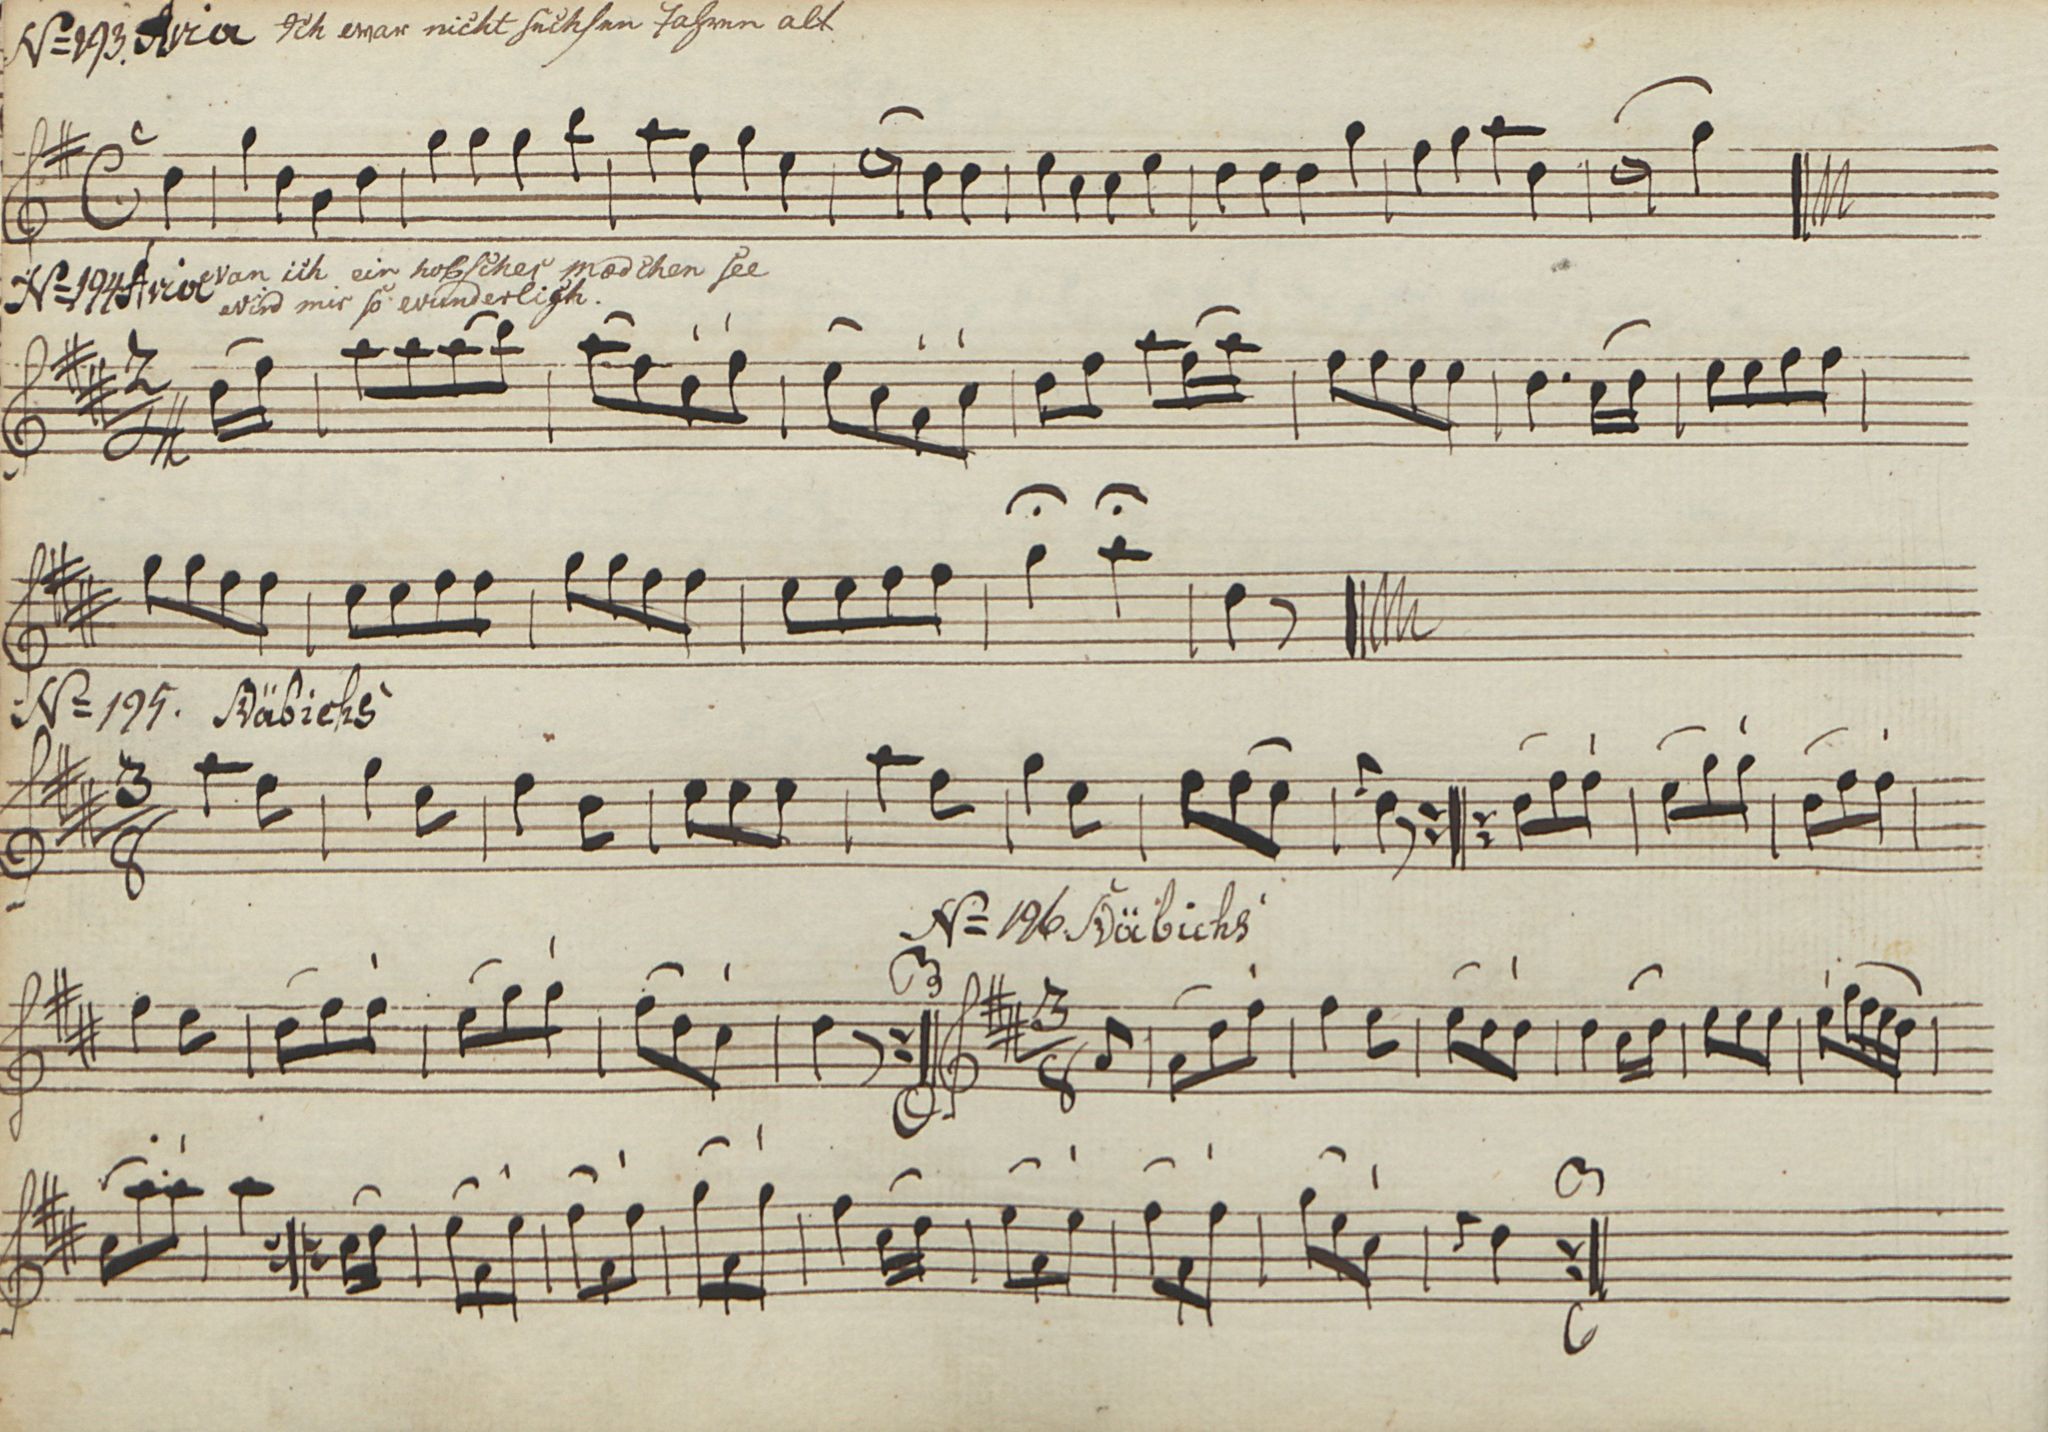 No 193. Aria Ich war nicht sechsen Jahren alt
No 194 Aria wan ich ein hopsches mædchen see
wird mir so wunderligh.
No 195. Räbichs
No 196. Räbichs